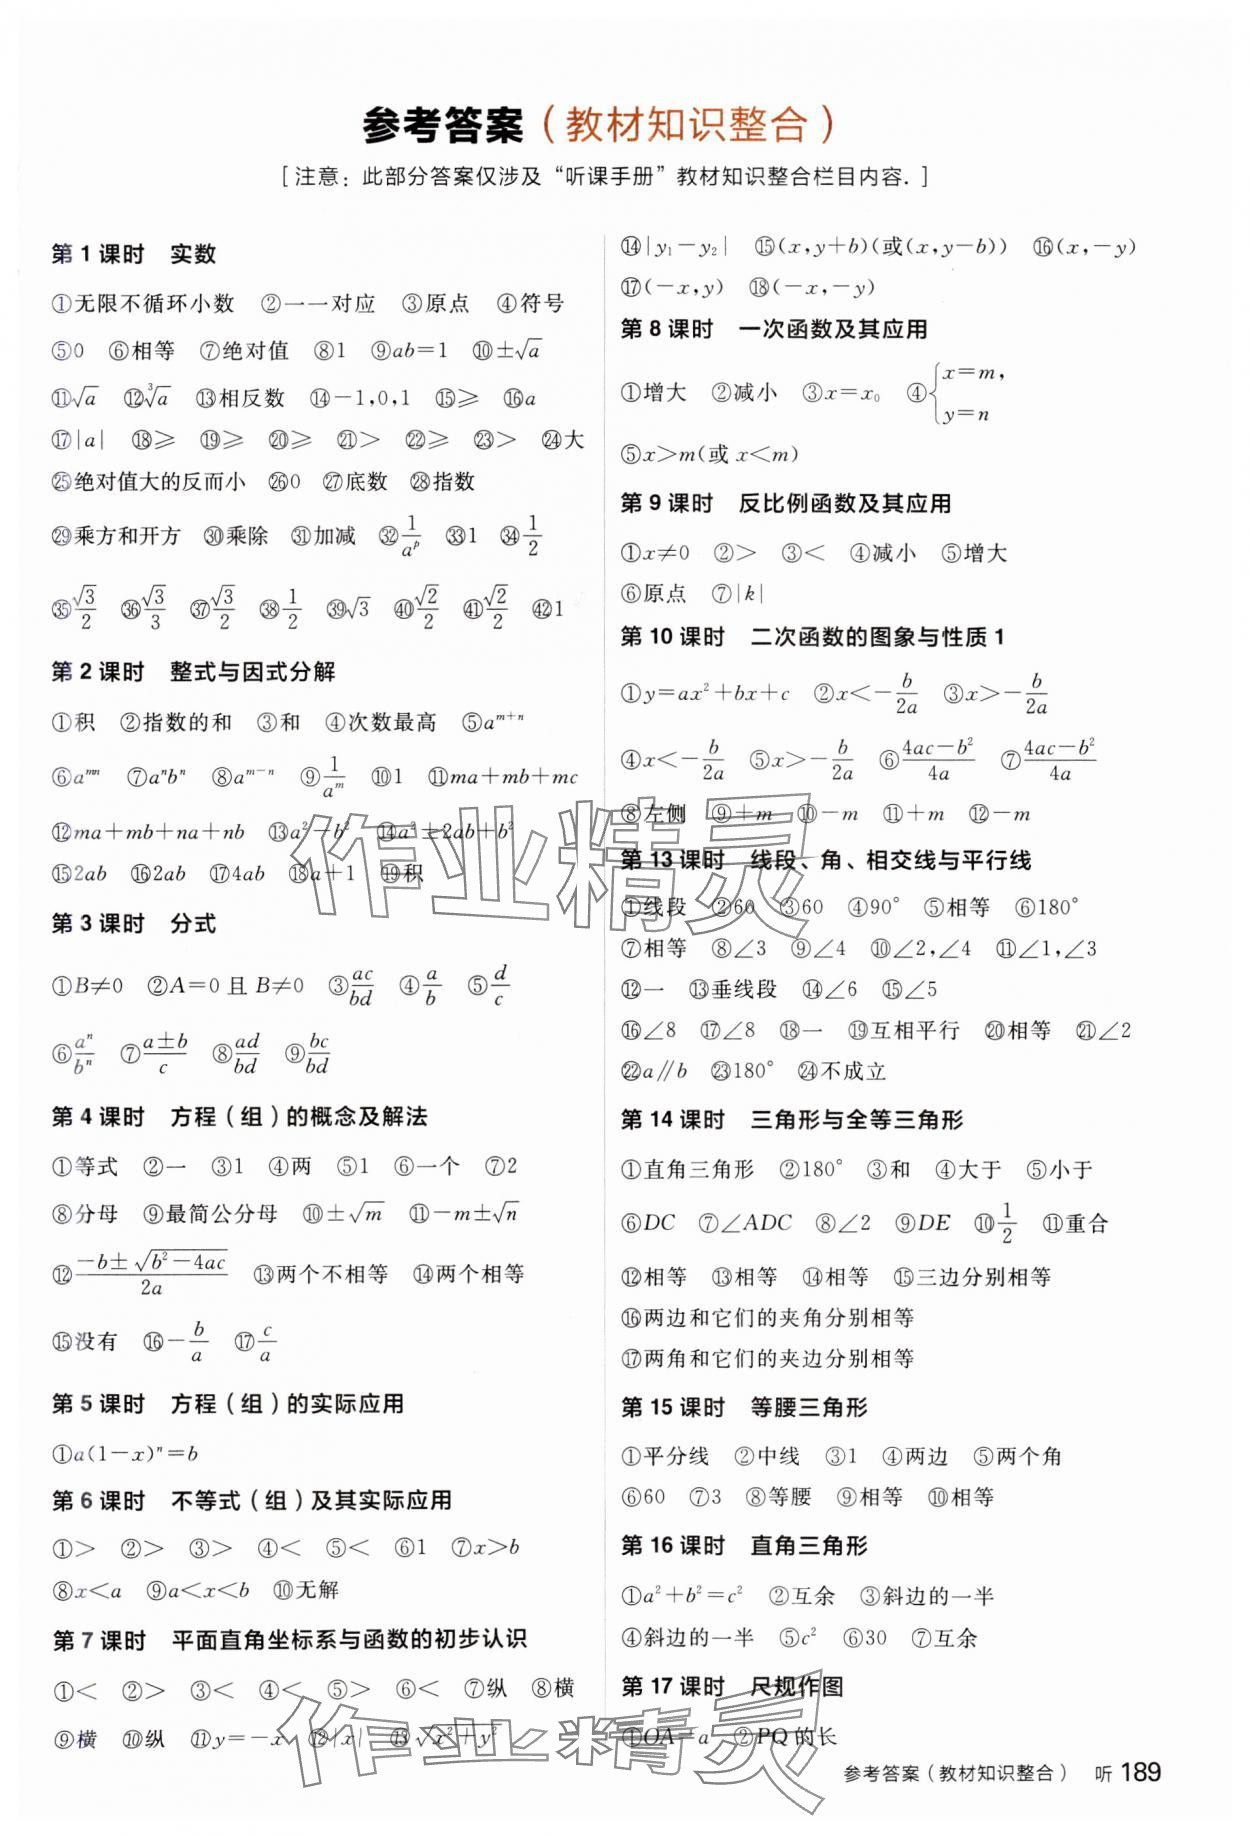 参考答案（教材知识整合）
[ 注意：此部分答案仅涉及“听课手册”教材知识整合栏目内容. ]
第 1 课时　实数
①无限不循环小数　②一一对应　③原点　④符号
⑤0　⑥相等　⑦绝对值　⑧1　⑨ab=1　⑩±√a
⑪√a　⑫∛a　⑬相反数　⑭-1,0,1　⑮≥　⑯a
⑰|a|　⑱≥　⑲≥　⑳≥　㉑>　㉒≥　㉓>　㉔大
㉕绝对值大的反而小　㉖0　㉗底数　㉘指数
㉙乘方和开方　㉚乘除　㉛加减　㉜1/aᵖ　㉝1　㉞1/2
㉟√3/2　㊱√3/3　㊲√3/2　㊳1/2　㊴√3　㊵√2/2　㊶√2/2　㊷1
第 2 课时　整式与因式分解
①积　②指数的和　③和　④次数最高　⑤aᵐ⁺ⁿ
⑥aᵐⁿ　⑦aⁿbⁿ　⑧aᵐ⁻ⁿ　⑨1/aᵐ　⑩1　⑪ma+mb+mc
⑫ma+mb+na+nb　⑬a²-b²　⑭a²±2ab+b²
⑮2ab　⑯2ab　⑰4ab　⑱a+1　⑲积
第 3 课时　分式
①B≠0　②A=0 且 B≠0　③ac/bd　④a/b　⑤d/c
⑥aⁿ/bⁿ　⑦(a±b)/c　⑧ad/bd　⑨bc/bd
第 4 课时　方程（组）的概念及解法
①等式　②一　③1　④两　⑤1　⑥一个　⑦2
⑧分母　⑨最简公分母　⑩±√m　⑪-m±√n
⑫(-b±√(b²-4ac))/2a　⑬两个不相等　⑭两个相等
⑮没有　⑯-b/a　⑰c/a
第 5 课时　方程（组）的实际应用
①a(1-x)ⁿ=b
第 6 课时　不等式（组）及其实际应用
①>　②>　③>　④<　⑤<　⑥1　⑦x>b
⑧x<a　⑨a<x<b　⑩无解
第 7 课时　平面直角坐标系与函数的初步认识
①<　②>　③<　④<　⑤>　⑥<　⑦纵　⑧横
⑨横　⑩纵　⑪y=-x　⑫|x|　⑬√(x²+y²)
⑭|y₁-y₂|　⑮(x,y+b)(或(x,y-b))　⑯(x,-y)
⑰(-x,y)　⑱(-x,-y)
第 8 课时　一次函数及其应用
①增大　②减小　③x=x₀　④{x=m, y=n
⑤x>m(或 x<m)
第 9 课时　反比例函数及其应用
①x≠0　②>　③<　④减小　⑤增大
⑥原点　⑦|k|
第 10 课时　二次函数的图象与性质 1
①y=ax²+bx+c　②x<-b/2a　③x>-b/2a
④x<-b/2a　⑤x>-b/2a　⑥(4ac-b²)/4a　⑦(4ac-b²)/4a
⑧左侧　⑨+m　⑩-m　⑪+m　⑫-m
第 13 课时　线段、角、相交线与平行线
①线段　②60　③60　④90°　⑤相等　⑥180°
⑦相等　⑧∠3　⑨∠4　⑩∠2,∠4　⑪∠1,∠3
⑫一　⑬垂线段　⑭∠6　⑮∠5
⑯∠8　⑰∠8　⑱一　⑲互相平行　⑳相等　㉑∠2
㉒a∥b　㉓180°　㉔不成立
第 14 课时　三角形与全等三角形
①直角三角形　②180°　③和　④大于　⑤小于
⑥DC　⑦∠ADC　⑧∠2　⑨DE　⑩1/2　⑪重合
⑫相等　⑬相等　⑭相等　⑮三边分别相等
⑯两边和它们的夹角分别相等
⑰两角和它们的夹边分别相等
第 15 课时　等腰三角形
①平分线　②中线　③1　④两边　⑤两个角
⑥60　⑦3　⑧等腰　⑨相等　⑩相等
第 16 课时　直角三角形
①a²+b²=c²　②互余　③斜边的一半
④斜边的一半　⑤c²　⑥30　⑦互余
第 17 课时　尺规作图
①OA=a　②PQ 的长
参考答案（教材知识整合）　听 189
作业精灵
作业精灵